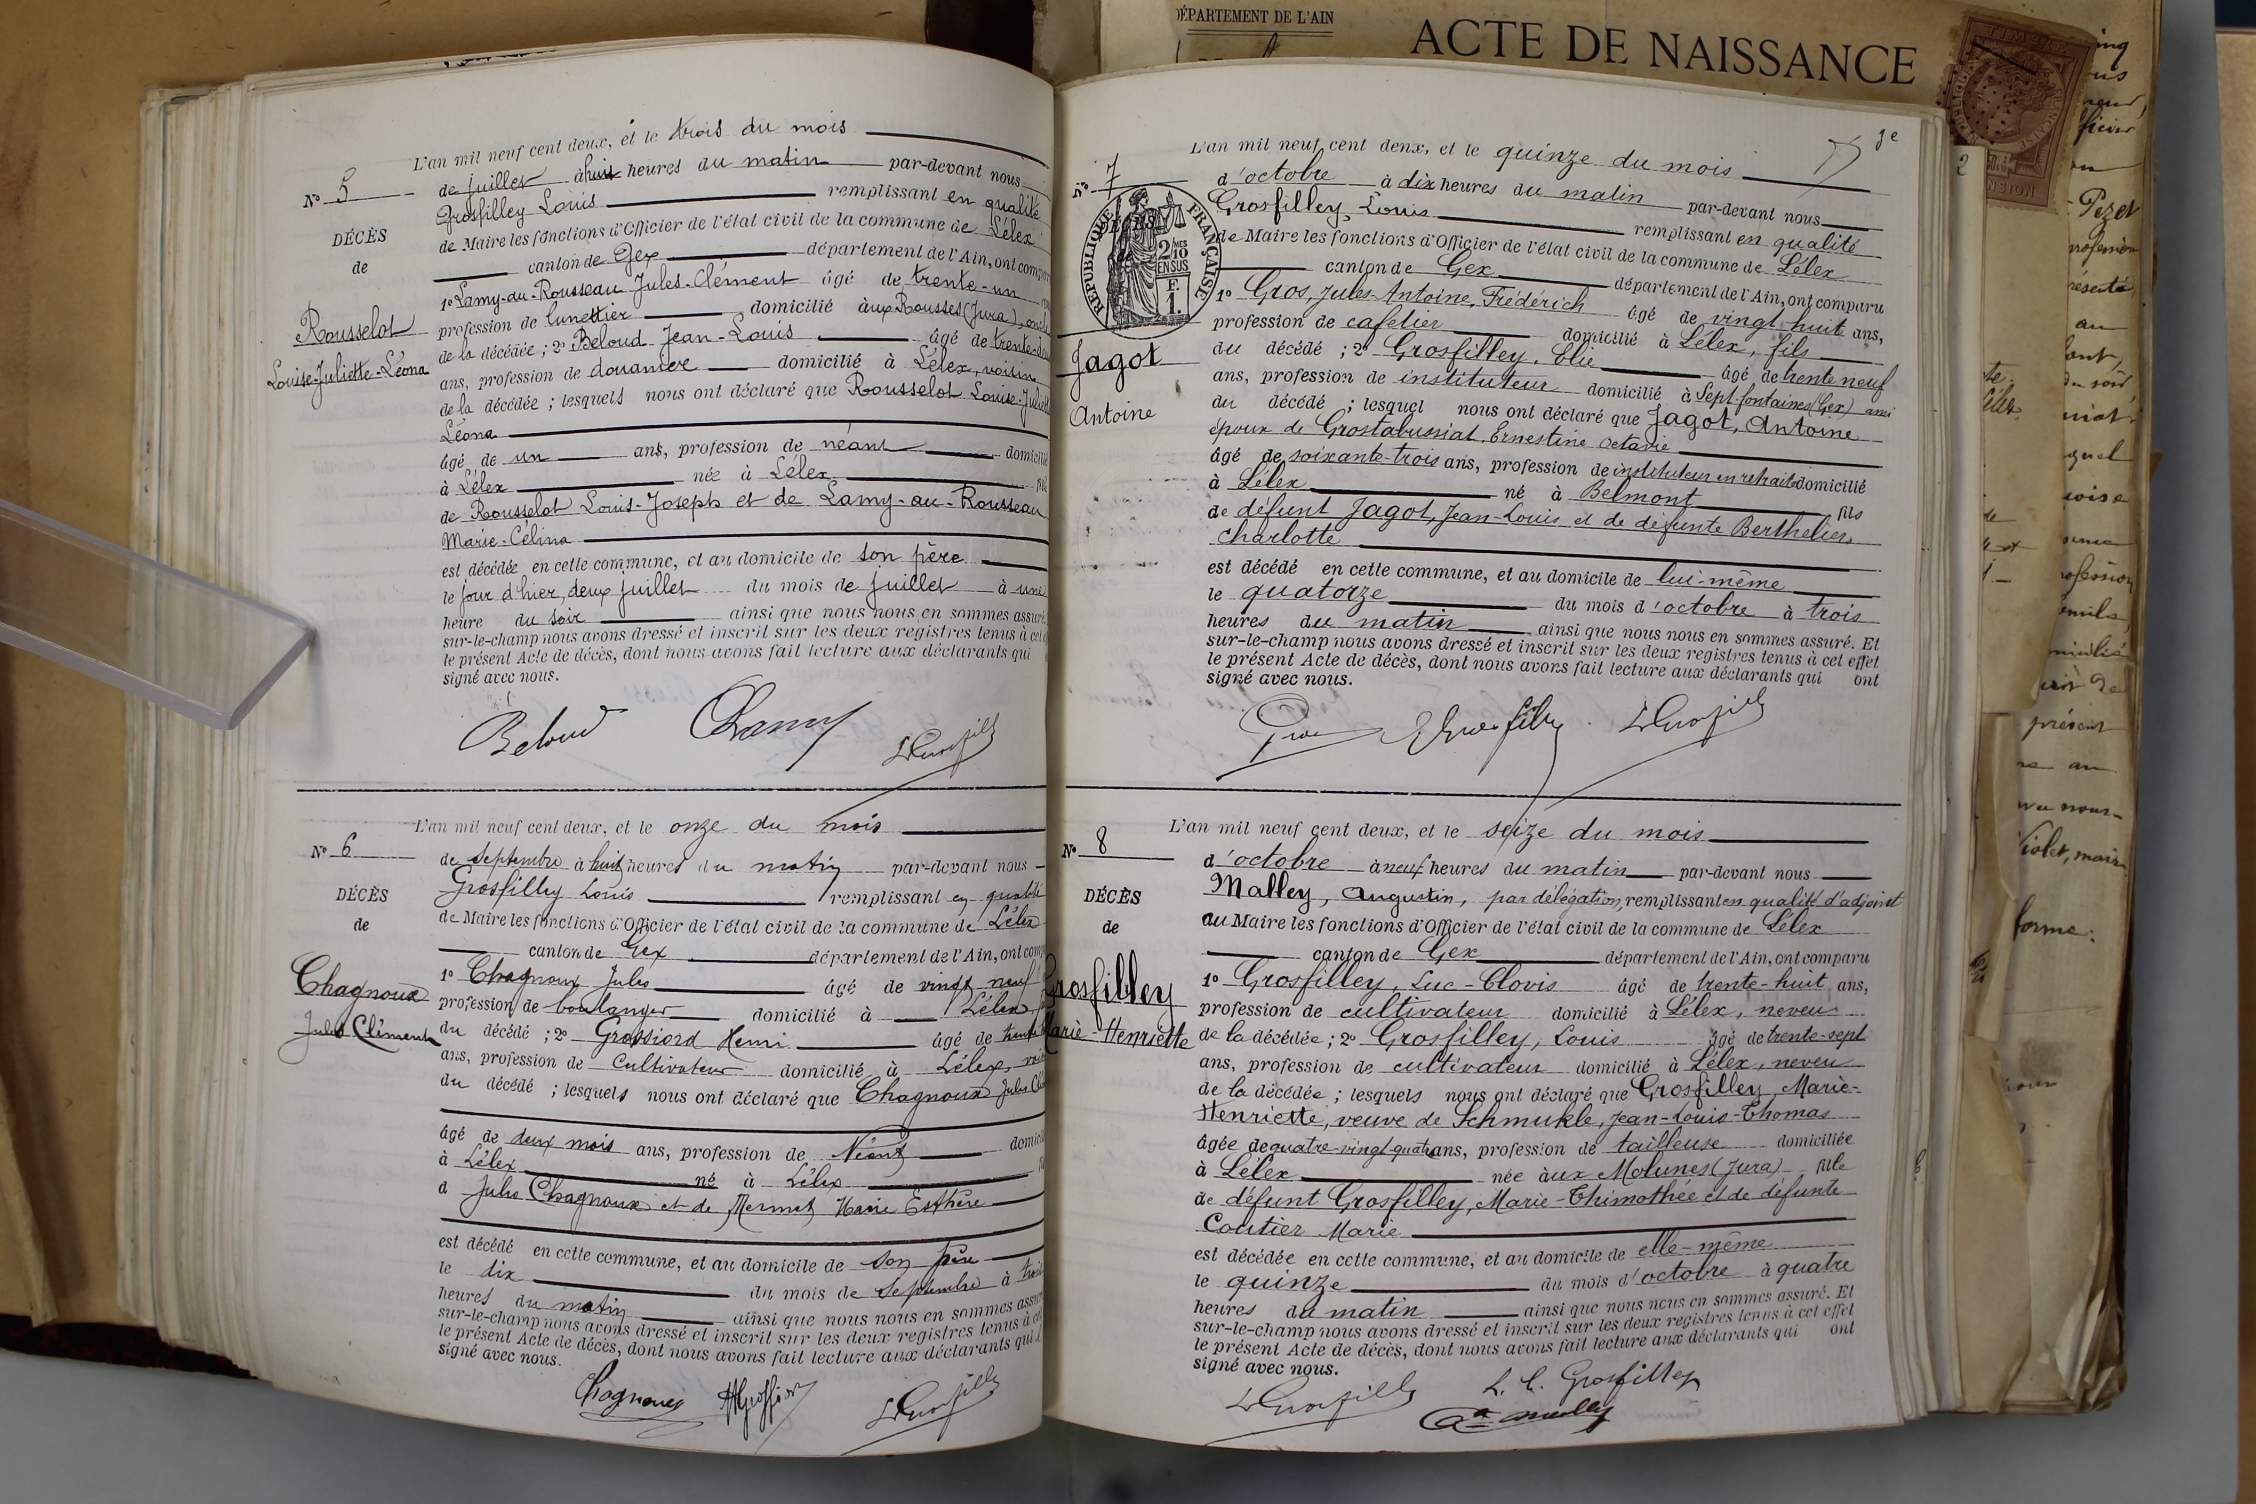 DÉPARTEMENT DE L'AIN
ACTE DE NAISSANCE
L'an mil neuf cent deux, et le trois du mois
N° 5
de juillet à huit heures du matin par-devant nous
Grosfilley Louis remplissant en qualité
DÉCÈS
de Maire les fonctions d'Officier de l'état civil de la commune de Lélex
de
canton de Gex département de l'Ain, ont compar
1° Lamy-au-Rousseau Jules-Clément âgé de trente-un
Rousselot
profession de lunettier domicilié aux Rousses (Jura), oncle
Louise-Juliette-Léona
de la décédée ; 2° Beloud Jean-Louis âgé de trente-deux
ans, profession de douanier domicilié à Lélex, voisin
de la décédée ; lesquels nous ont déclaré que Rousselot Louise-Juliette
Léona
âgé de un ans, profession de néant domicilié
à Lélex née à Lélex
de Rousselot Louis-Joseph et de Lamy-au-Rousseau
Marie-Célina
est décédée en cette commune, et au domicile de son père
le jour d'hier, deux juillet du mois de juillet à une
heure du soir ainsi que nous nous en sommes assuré.
sur-le-champ nous avons dressé et inscrit sur les deux registres tenus à cet
le présent Acte de décès, dont nous avons fait lecture aux déclarants qui
signé avec nous.
Beloud Lamy L Grosfilley
L'an mil neuf cent deux, et le onze du mois
N° 6
de septembre à huit heures du matin par-devant nous
Grosfilley Louis remplissant en qualité
DÉCÈS
de Maire les fonctions d'Officier de l'état civil de la commune de Lélex
de
canton de Gex département de l'Ain, ont comp
1° Chagnoux Jules âgé de vingt neuf
Chagnoux
profession de boulanger domicilié à Lélex
Jules Clément
du décédé ; 2° Grossiord Henri âgé de trente
ans, profession de cultivateur domicilié à Lélex,
du décédé ; lesquels nous ont déclaré que Chagnoux Jules
âgé de deux mois ans, profession de Néant domic
à Lélex né à Lélex
d Jules Chagnoux et de Mermet Marie Esthère
est décédé en cette commune, et au domicile de son père
le dix du mois de septembre à trois
heures du matin ainsi que nous nous en sommes assur
sur-le-champ nous avons dressé et inscrit sur les deux registres tenus à cet
le présent Acte de décès, dont nous avons fait lecture aux déclarants qui
signé avec nous.
Chagnoux HGrossiord L Grosfilley
L'an mil neuf cent deux, et le quinze du mois
N° 7
d'octobre à dix heures du matin par-devant nous
Grosfilley, Louis remplissant en qualité
RÉPUBLIQUE FRANÇAISE
2/10 EN SUS
F. 1.
de Maire les fonctions d'Officier de l'état civil de la commune de Lélex
canton de Gex département de l'Ain, ont comparu
1° Gros, Jules-Antoine, Frédérich âgé de vingt-huit ans,
profession de cafetier domicilié à Lélex, fils
Jagot
du décédé ; 2° Grosfilley, Elie âgé de trente neuf
ans, profession de instituteur domicilié à Sept-fontaines (Gex) ami
Antoine
du décédé ; lesquel nous ont déclaré que Jagot, Antoine
époux de Grostabussiat, Ernestine Octavie
âgé de soixante-trois ans, profession de instituteur en retraite domicilié
à Lélex né à Belmont fils
de défunt Jagot, Jean-Louis et de défunte Berthelier
Charlotte
est décédé en cette commune, et au domicile de lui-même
le quatorze du mois d'octobre à trois
heures du matin ainsi que nous nous en sommes assuré. Et
sur-le-champ nous avons dressé et inscrit sur les deux registres tenus à cet effet
le présent Acte de décès, dont nous avons fait lecture aux déclarants qui ont
signé avec nous.
Gros E Grosfilley L Grosfilley
L'an mil neuf cent deux, et le seize du mois
N° 8
d'octobre à neuf heures du matin par-devant nous
Malley, Augustin, par délégation, remplissant en qualité d'adjoint
DÉCÈS
au Maire les fonctions d'Officier de l'état civil de la commune de Lélex
de
canton de Gex département de l'Ain, ont comparu
Grosfilley
1° Grosfilley, Luc-Clovis âgé de trente-huit ans,
profession de cultivateur domicilié à Lélex, neveu
Marie-Henriette
de la décédée ; 2° Grosfilley, Louis âgé de trente-sept
ans, profession de cultivateur domicilié à Lélex, neveu
de la décédée ; lesquels nous ont déclaré que Grosfilley, Marie-
Henriette, veuve de Schmukle, Jean-Louis-Thomas
âgée de quatre-vingt-quatre ans, profession de tailleuse domiciliée
à Lélex née aux Molunes (Jura) fille
de défunt Grosfilley, Marie-Thimothée et de défunte
Coutier Marie
est décédée en cette commune, et au domicile de elle-même
le quinze du mois d'octobre à quatre
heures du matin ainsi que nous nous en sommes assuré. Et
sur-le-champ nous avons dressé et inscrit sur les deux registres tenus à cet effet
le présent Acte de décès, dont nous avons fait lecture aux déclarants qui ont
signé avec nous.
L Grosfilley L. C. Grosfilley
An Malley
Pezet
profession
au
quel
profession
présent
Violet, maire
forme: